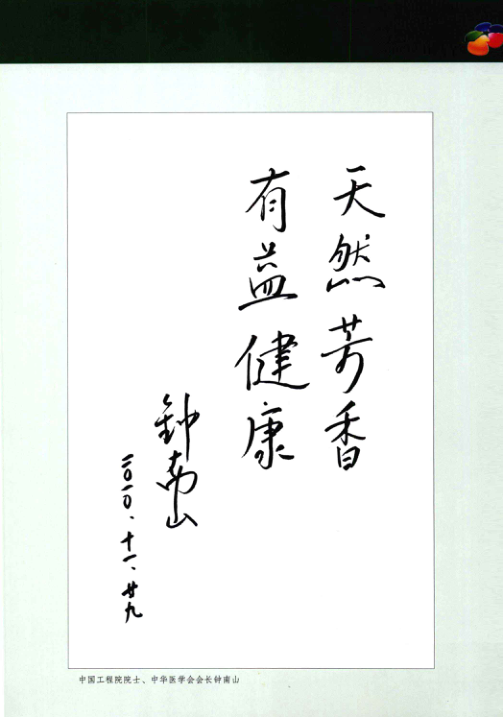 天然芳香
有益健康
钟南山
二〇一〇、十一、廿九
中国工程院院士、中华医学会会长钟南山